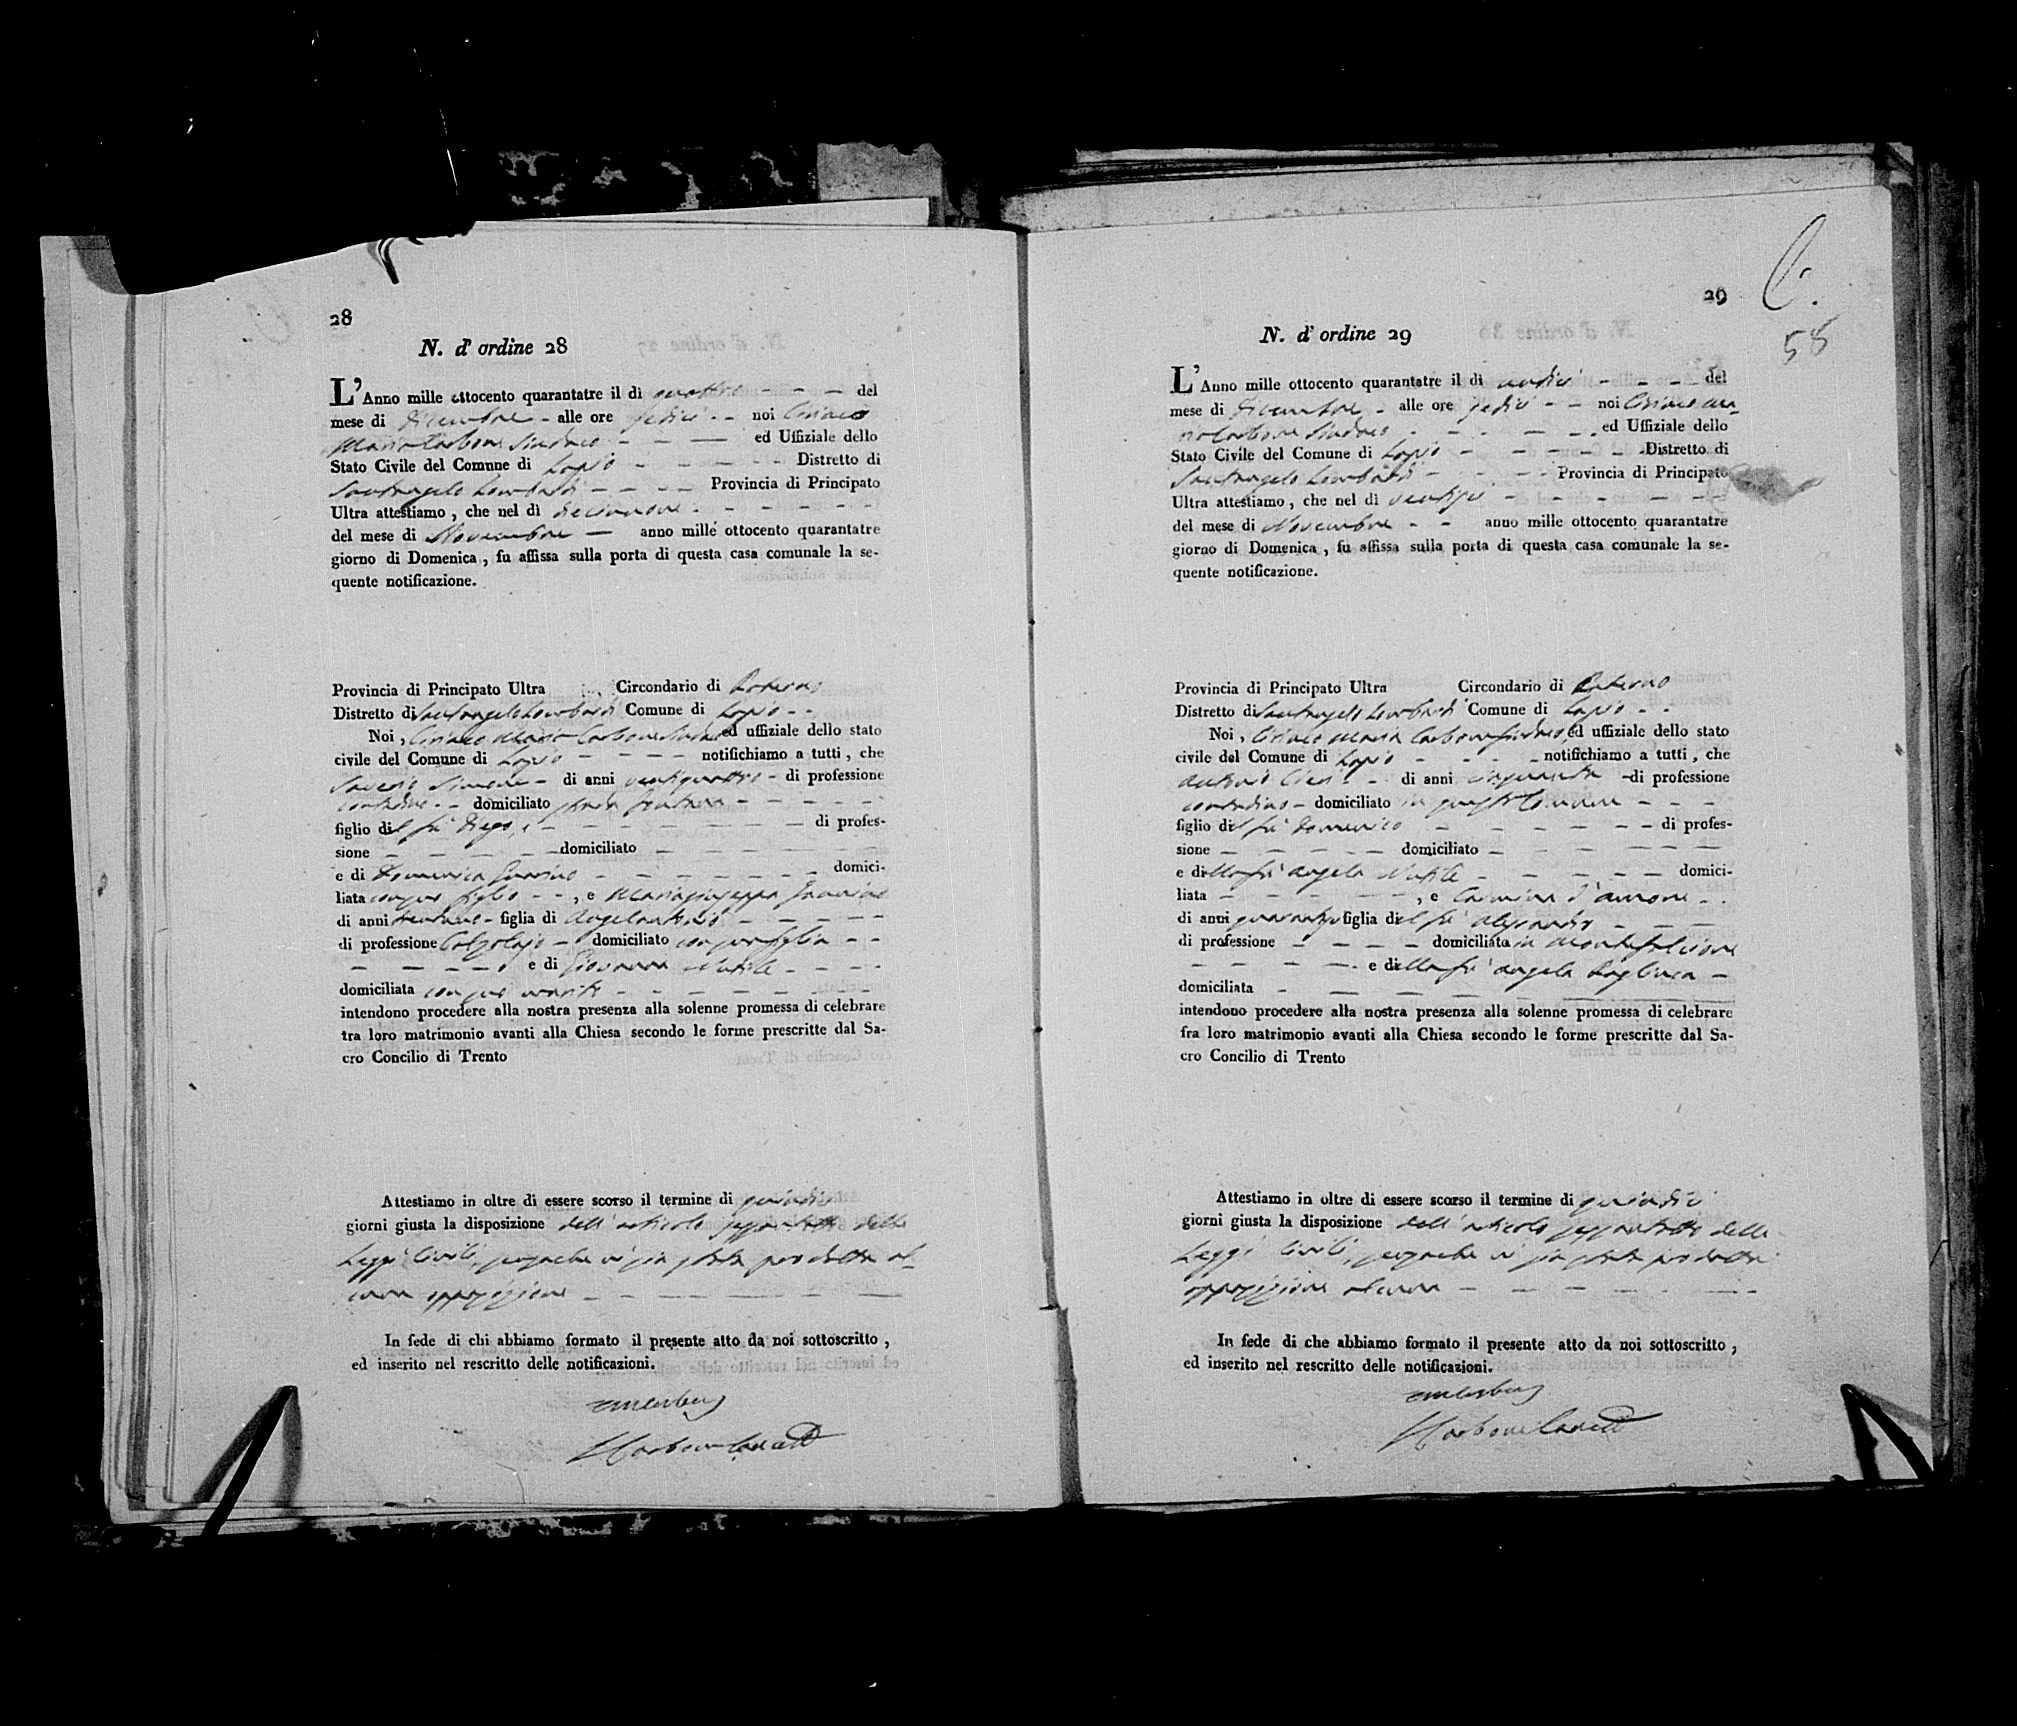 28
N. d' ordine 28
L'Anno mille ottocento quarantatre il dì quattro - - - del
mese di Dicembre - alle ore sedici - - noi Ciriaco
Maria Carbone Sindaco - - - ed Uffiziale dello
Stato Civile del Comune di Lapio - - - - - Distretto di
Santangelo Lombardi - - - - Provincia di Principato
Ultra attestiamo , che nel dì diecinnove - - - - - -
del mese di Novembre - anno mille ottocento quarantatre
giorno di Domenica , fu affissa sulla porta di questa casa comunale la se-
quente notificazione.
Provincia di Principato Ultra Circondario di Paterno
Distretto di Santangelo Lombardi Comune di Lapio - -
Noi , Ciriaco Maria Carbone Sindaco ed uffiziale dello stato
civile del Comune di Lapio - - - - notifichiamo a tutti , che
Saverio Simone - di anni ventiquattro - di professione
contadino - - domiciliato strada fontana - - - - -
figlio del fu Diego, - - - - - - - - di profes-
sione - - - - - domiciliato - - - - - -
e di Domenica Guarino - - - - - - - domici-
liata con suo figlio - - , e Mariagiuseppa Guarino
di anni - figlia di Angelantonio - - - - -
di professione Calzolajo - domiciliato con sua figlia - -
- - - - , e di Giovanna Nutile - - - -
domiciliata con suo marito - - - - - - -
intendono procedere alla nostra presenza alla solenne promessa di celebrare
tra loro matrimonio avanti alla Chiesa secondo le forme prescritte dal Sa-
cro Concilio di Trento
Attestiamo in oltre di essere scorso il termine di quindici
giorni giusta la disposizione dell'articolo sessantotto delle
Leggi Civili, senzache vi sia stata prodotta al-
cuna opposizione - - - - - -
In fede di chi abbiamo formato il presente atto da noi sottoscritto ,
ed inserito nel rescritto delle notificazioni.
29
58
N. d' ordine 29
L'Anno mille ottocento quarantatre il dì undici - - - - del
mese di Dicembre - alle ore sedici - - noi Ciriaco Ma-
ria Carbone Sindaco - - - - - - ed Uffiziale dello
Stato Civile del Comune di Lapio - - - - - Distretto di
Santangelo Lombardi - - - - - Provincia di Principato
Ultra attestiamo , che nel dì ventisei - - - - - - -
del mese di Novembre - - anno mille ottocento quarantatre
giorno di Domenica , fu affissa sulla porta di questa casa comunale la se-
quente notificazione.
Provincia di Principato Ultra Circondario di Paterno
Distretto di Santangelo Lombardi Comune di Lapio - -
Noi , Ciriaco Maria Carbone Sindaco, ed uffiziale dello stato
civile del Comune di Lapio - - - - - notifichiamo a tutti , che
Antonio - - di anni cinquanta - di professione
contadino - domiciliato in questo Comune - - -
figlio del fu Domenico - - - - - - - di profes-
sione - - - - - domiciliato - - - - - -
e della fu Angela Nutile - - - - - - domici-
liata - - - - - - , e Carmina d'Amore - -
di anni figlia del fu Alessandro - - -
di professione - - - - domiciliata in Montefalcione
- - - - - e della fu Angela Pagliuca -
domiciliata - - - - - - - -
intendono procedere alla nostra presenza alla solenne promessa di celebrare
fra loro matrimonio avanti alla Chiesa secondo le forme prescritte dal Sa-
cro Concilio di Trento
Attestiamo in oltre di essere scorso il termine di quindici
giorni giusta la disposizione dell'articolo sessantotto delle
Leggi Civili, senzache vi sia stata prodotta
opposizione alcuna - - - - - -
In fede di che abbiamo formato il presente atto da noi sottoscritto ,
ed inserito nel rescritto delle notificazioni.